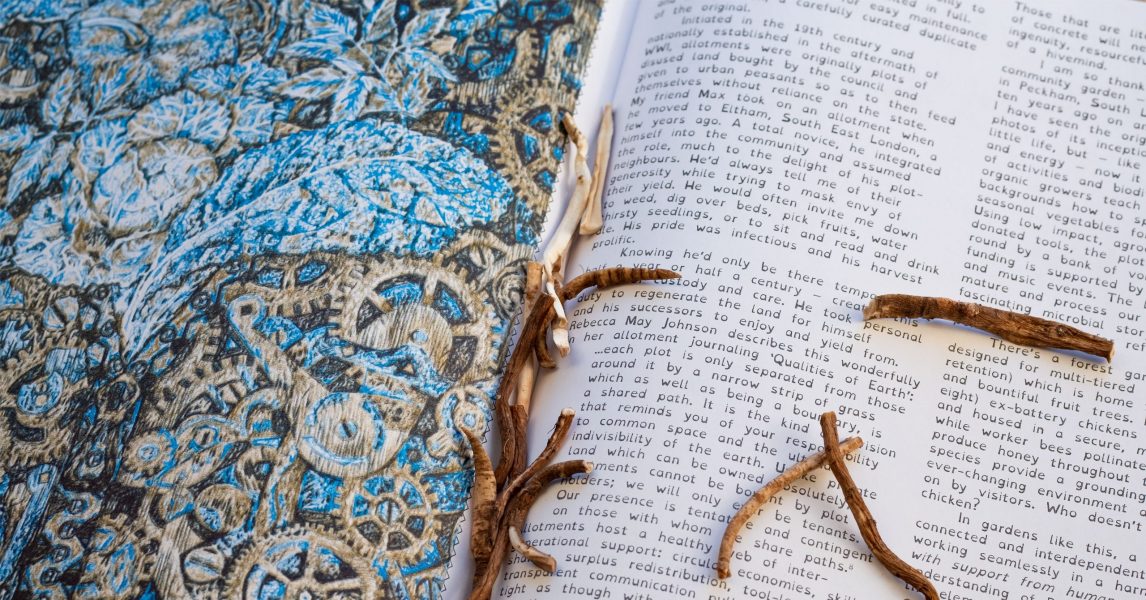 only to
in full.
for easy maintenance
a carefully curated duplicate
of the original.
Initiated in the 19th century and
nationally established in the aftermath of
WWI, allotments were originally plots of
disused land bought by the council and
given to urban peasants so as to then feed
themselves without reliance on the state.
My friend Max took on an allotment when
he moved to Eltham, South East London, a
few years ago. A total novice, he integrated
himself into the community and assumed
the role, much to the delight of his plot-
neighbours. He'd always tell me of their
generosity while trying to mask envy of
their yield. He would often invite me down
weed, dig over beds, pick fruits, water
thirsty seedlings, or to sit and read and drink
His pride was infectious and his harvest
prolific.
Knowing he'd only be there
half a year or half a century –
custody and care. He took
duty to regenerate the land for himself personal
and his successors to enjoy and yield from.
Rebecca May Johnson describes this wonderfully
in her allotment journaling 'Qualities of Earth':
...each plot is only separated from those
around it by a narrow strip of grass
which as well as being a boundary, is
a shared path. It is the kind
that reminds you of your responsibility
to common space and the
indivisibility of the earth.
land which can be owned absolutely
cannot be
holders; we will only be tenants.
Our presence is
on those with whom share paths.⁸
allotments host a healthy web of inter-
operational support:
surplus redistribution, economies,
transparent communication
tight as though
Those that are
of concrete will
ingenuity,
of a hivemind.
I am so
community garden
in Peckham, South
ten years ago
I have seen the
photos of its
little life, but – now
and energy –
of activities and
organic growers teach
backgrounds how to
seasonal vegetables
Using low impact,
donated tools, the plot
round by a bank of
funding is supported
and music events. The
mature and process our
fascinating microbial
There's a forest
designed for multi-tiered
retention) which is home
and bountiful fruit trees.
eight) ex-battery chickens
and housed in a secure,
while worker bees pollinate
produce honey throughout
species provide a grounding
ever-changing environment
on by visitors. Who doesn't
chicken?
In gardens like this, a
connected and interdependent
working seamlessly in a
with support from human
understanding of